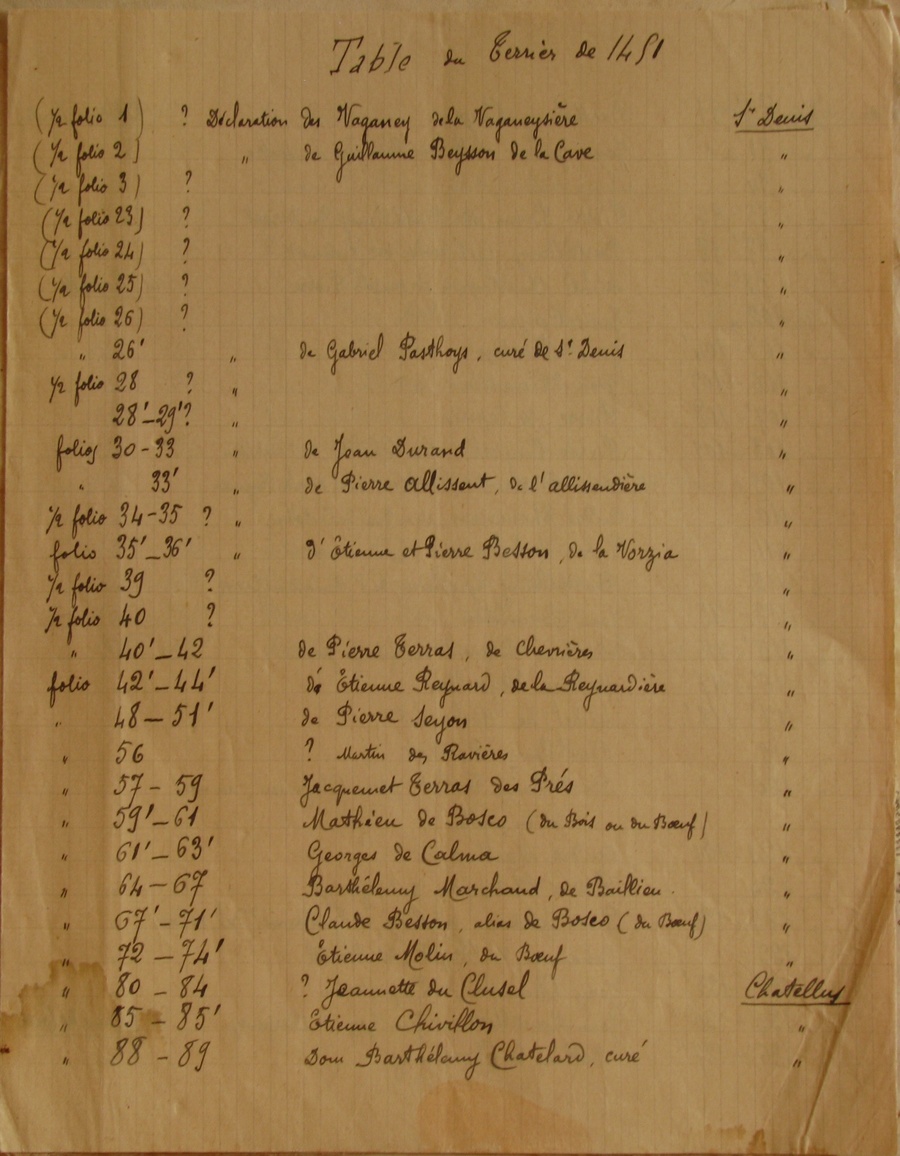 Table du Terrier de 1451
(1/2 folio 1) ? Déclaration des Naganey de la Naganeysière St Denis
(1/2 folio 2) " de Guillaume Beysson de la Cave "
(1/2 folio 3) ? "
(1/2 folio 23) ? "
(1/2 folio 24) ? "
(1/2 folio 25) ? "
(1/2 folio 26) ? "
" 26' " de Gabriel Pasthoys, curé de St Denis "
1/2 folio 28 ? " "
28'-29'? " "
folios 30-33 " de Jean Durand "
" 33' " de Pierre Allissent, de l'allissendière "
1/2 folio 34-35 ? " "
folio 35'-36' " d'Étienne et Pierre Besson, de la Vorzia "
1/2 folio 39 ? "
1/2 folio 40 ? "
" 40'-42 de Pierre Terras, de Chevrières "
folio 42'-44' d'Étienne Reynard, de la Reynardière "
" 48-51' de Pierre Seyon "
" 56 ? Martin des Ravières "
" 57-59 Jacquemet Terras des Prés "
" 59'-61 Mathieu de Bosco (du Bois ou du Bœuf) "
" 61'-63' Georges de Calma "
" 64-67 Barthélemy Marchand, de Baillieu. "
" 67'-71' Claude Besson, alias de Bosco (du Bœuf) "
" 72-74' Étienne Molin, du Bœuf "
" 80-84 ? Jeannette du Clusel Chatellus
" 85-85' Étienne Chivillon "
" 88-89 Dom Barthélemy Chatelard, curé "